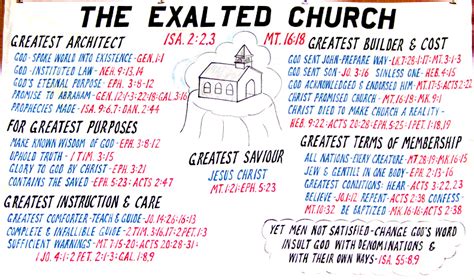 THE EXALTED CHURCH
ISA. 2:2,3
MT. 16:18
GREATEST ARCHITECT
GOD - SPOKE WORLD INTO EXISTENCE - GEN. 1:1
GOD - INSTITUTED LAW - NEH. 9:13,14
GOD'S ETERNAL PURPOSE - EPH. 3:8-12
PROMISE TO ABRAHAM - GEN. 12:1-3; 22:18; GAL. 3:16
PROPHECIES MADE - ISA. 9:6,7; DAN. 2:44
FOR GREATEST PURPOSES
MAKE KNOWN WISDOM OF GOD - EPH. 3:8-11
UPHOLD TRUTH - 1 TIM. 3:15
GLORY TO GOD BY CHRIST - EPH. 3:21
CONTAINS THE SAVED - EPH. 5:23; ACTS 2:47
GREATEST INSTRUCTION & CARE
GREATEST COMFORTER - TEACH & GUIDE - JO. 14:26; 16:13
COMPLETE & INFALLIBLE GUIDE - 2 TIM. 3:16,17; 2 PET. 1:3
SUFFICIENT WARNINGS - MT. 7:15-20; ACTS 20:28-31;
1 JO. 4:1; 2 PET. 2:1-3; GAL. 1:8,9
GREATEST SAVIOUR
JESUS CHRIST
MT. 1:21; EPH. 5:23
GREATEST BUILDER & COST
GOD SENT JOHN - PREPARE WAY - LK. 7:28; 1:17; MT. 3:3
GOD SENT SON - JO. 3:16 SINLESS ONE - HEB. 4:15
GOD ACKNOWLEDGED & ENDORSED HIM - MT. 3:17; 17:5
CHRIST PROMISED CHURCH - MT. 16:18; MK. 9:1
CHRIST DIED TO MAKE CHURCH A REALITY -
HEB. 9:22; ACTS 20:28; EPH. 5:25; 1 PET. 1:18,19
GREATEST TERMS OF MEMBERSHIP
ALL NATIONS - EVERY CREATURE - MT. 28:19; MK. 16:15
JEW & GENTILE IN ONE BODY - EPH. 2:13-16
GREATEST CONDITIONS: HEAR - EPH. 3:22,23
BELIEVE - JO. 8:24; REPENT - ACTS 2:38; CONFESS
MT. 10:32 BE BAPTIZED - MK. 16:16; ACTS 2:38
YET MEN NOT SATISFIED - CHANGE GOD'S WORD
INSULT GOD WITH DENOMINATIONS &
WITH THEIR OWN WAYS - ISA. 55:8,9